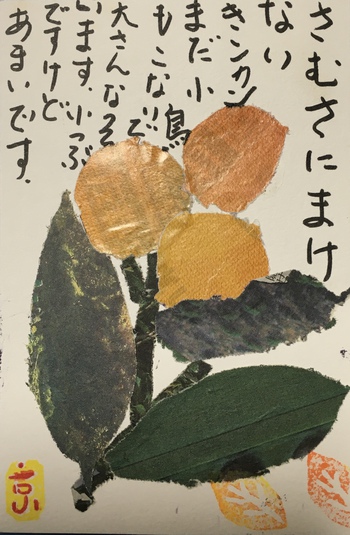 さむさにまけ
ない
きンカン
まだ小鳥
もこないで
大さんな
います。小つぶ
ですけど
あまいです.